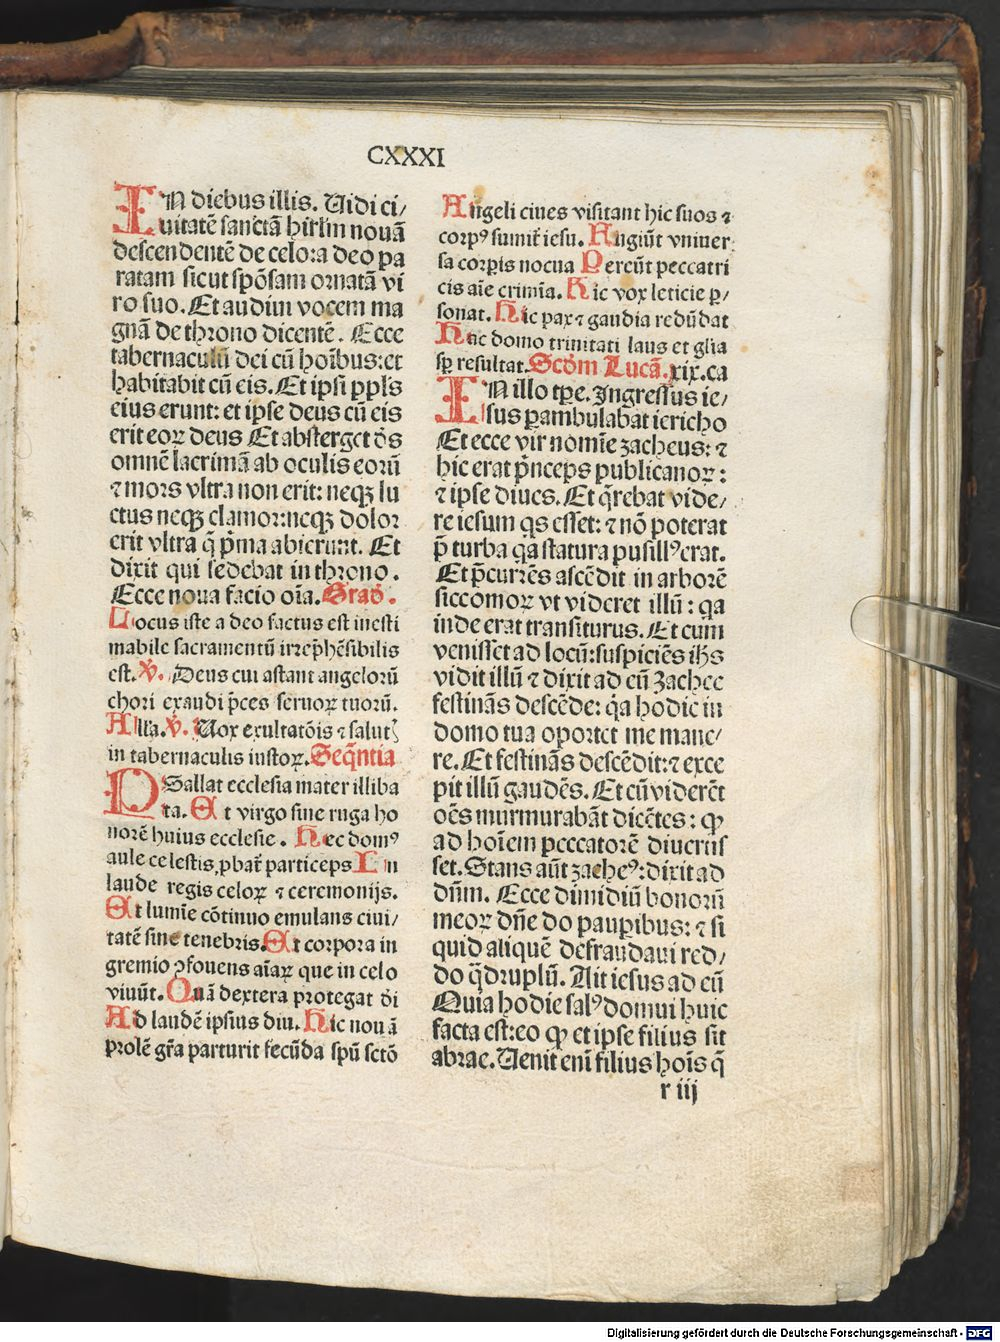 CXXXI
IN diebus illis. Uidi ci/
uitatē sanctā hirl'm nouā
descendentē de celo:a deo pa
ratam sicut spōsam ornatā vi
ro suo. Et audiui vocem ma
gnā de throno dicentē. Ecce
tabernaculū dei cū hoībus:et
habitabit cū eis. Et ipsi ppl's
eius erunt: et ipse deus cū eis
erit eoꝝ deus Et absterget ds̄
omnē lacrimā ab oculis eorū
⁊ mors vltra non erit: neqꝫ lu
ctus neqꝫ clamor:neqꝫ dolor
erit vltra q̄ pͥma abierunt. Et
dixit qui sedebat in throno.
Ecce noua facio oīa. Grad̄.
Locus iste a deo factus est inesti
mabile sacramentū irrep̄hēsibilis
est. ℣. Deus cui astant angelorū
chori exaudi p̄ces seruoꝝ tuorū.
Alla. ℣. Uox exultatōis ⁊ salutꝭ
in tabernaculis iustoꝝ. Seq̄ntia
PSallat ecclesia mater illiba
ta. Et virgo sine ruga ho
norē huius ecclesie. Hec domꝰ
aule celestis ꝓbat᷑ particeps In
laude regis celoꝝ ⁊ ceremonijs.
Et lumīe cōtinuo emulans ciui/
tatē sine tenebris. Et corpora in
gremio ꝯfouens aīaꝝ que in celo
viuūt. Quā dextera protegat d̄i
Ad laudē ipsius diu. Hic nouā
prolē gr̄a parturit fecūda spū sctō
Angeli ciues visitant hic suos ⁊
corpꝰ sumit᷑ iesu. Fugiūt vniuer
sa corpꝑis nocua Pereūt peccatri
cis aīe crimīa. Hic vox leticie ꝑ/
sonat. Hic pax ⁊ gaudia redūdat
Hac domo trinitati laus et gl'ia
sꝑ resultat. Scd̄m Lucā. xix. ca
IN illo tꝑe. Ingressus ie/
sus ꝑambulabat iericho
Et ecce vir nomīe zacheus: ⁊
hic erat pͥnceps publicanoꝝ:
⁊ ipse diues. Et q̄rebat vide/
re iesum qͥs esset: ⁊ nō poterat
p̄ turba qͥa statura pusillꝰ erat.
Et p̄currēs ascēdit in arborē
siccomoꝝ vt videret illū: qͥa
inde erat transiturus. Et cum
venisset ad locū:suspiciēs ihs̄
vidit illū ⁊ dixit ad eū Zachee
festinās descēde: qͥa hodie in
domo tua oportet me mane/
re. Et festinās descēdit:⁊ exce
pit illū gaudēs. Et cū viderēt
oēs murmurabāt dicētes: ꝙ
ad hoīem peccatorē diuertis
set. Stans aūt zacheꝰ:dixit ad
dn̄m. Ecce dimidiū bonorū
meoꝝ dn̄e do pauꝑibus: ⁊ si
quid aliquē defraudaui red/
do q̄druplū. Ait iesus ad eū
Quia hodie salꝰ domui huic
facta est:eo ꝙ et ipse filius sit
abrae. Uenit eni filius hoīs q̄
r iij
Digitalisierung gefördert durch die Deutsche Forschungsgemeinschaft - DFG